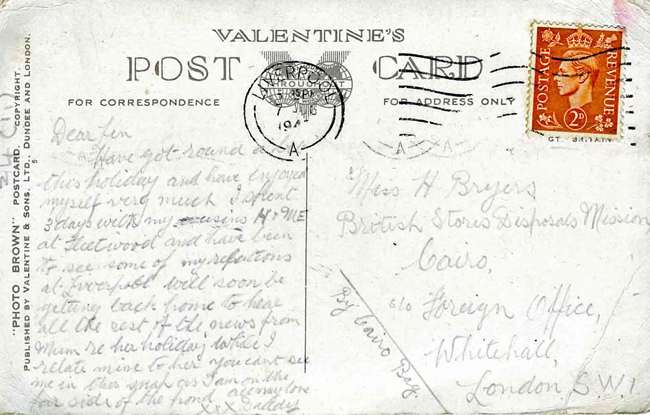 VALENTINE'S
POST CARD
FOR CORRESPONDENCE
FOR ADDRESS ONLY
LIVERPOOL
A
POSTAGE
REVENUE
2D
GT. BRITAIN
"PHOTO BROWN" POSTCARD. COPYRIGHT.
PUBLISHED BY VALENTINE & SONS, LTD., DUNDEE AND LONDON.
Dear
Have got round
this holiday and have enjoyed
myself very much I spent
3 days with my cousins H & ME
at Fleetwood and have been
to see some of my
at Liverpool will soon be
getting back home to hear
all the rest of the news from
Mum re her holiday while I
relate mine to her you cant see
me in this snap as I am on the
far side of the pond all my love
XXX Daddy
Miss H Bryers
British Stores Disposals Mission,
Cairo,
c/o Foreign Office,
Whitehall,
London, S.W.1
By Cairo Bag